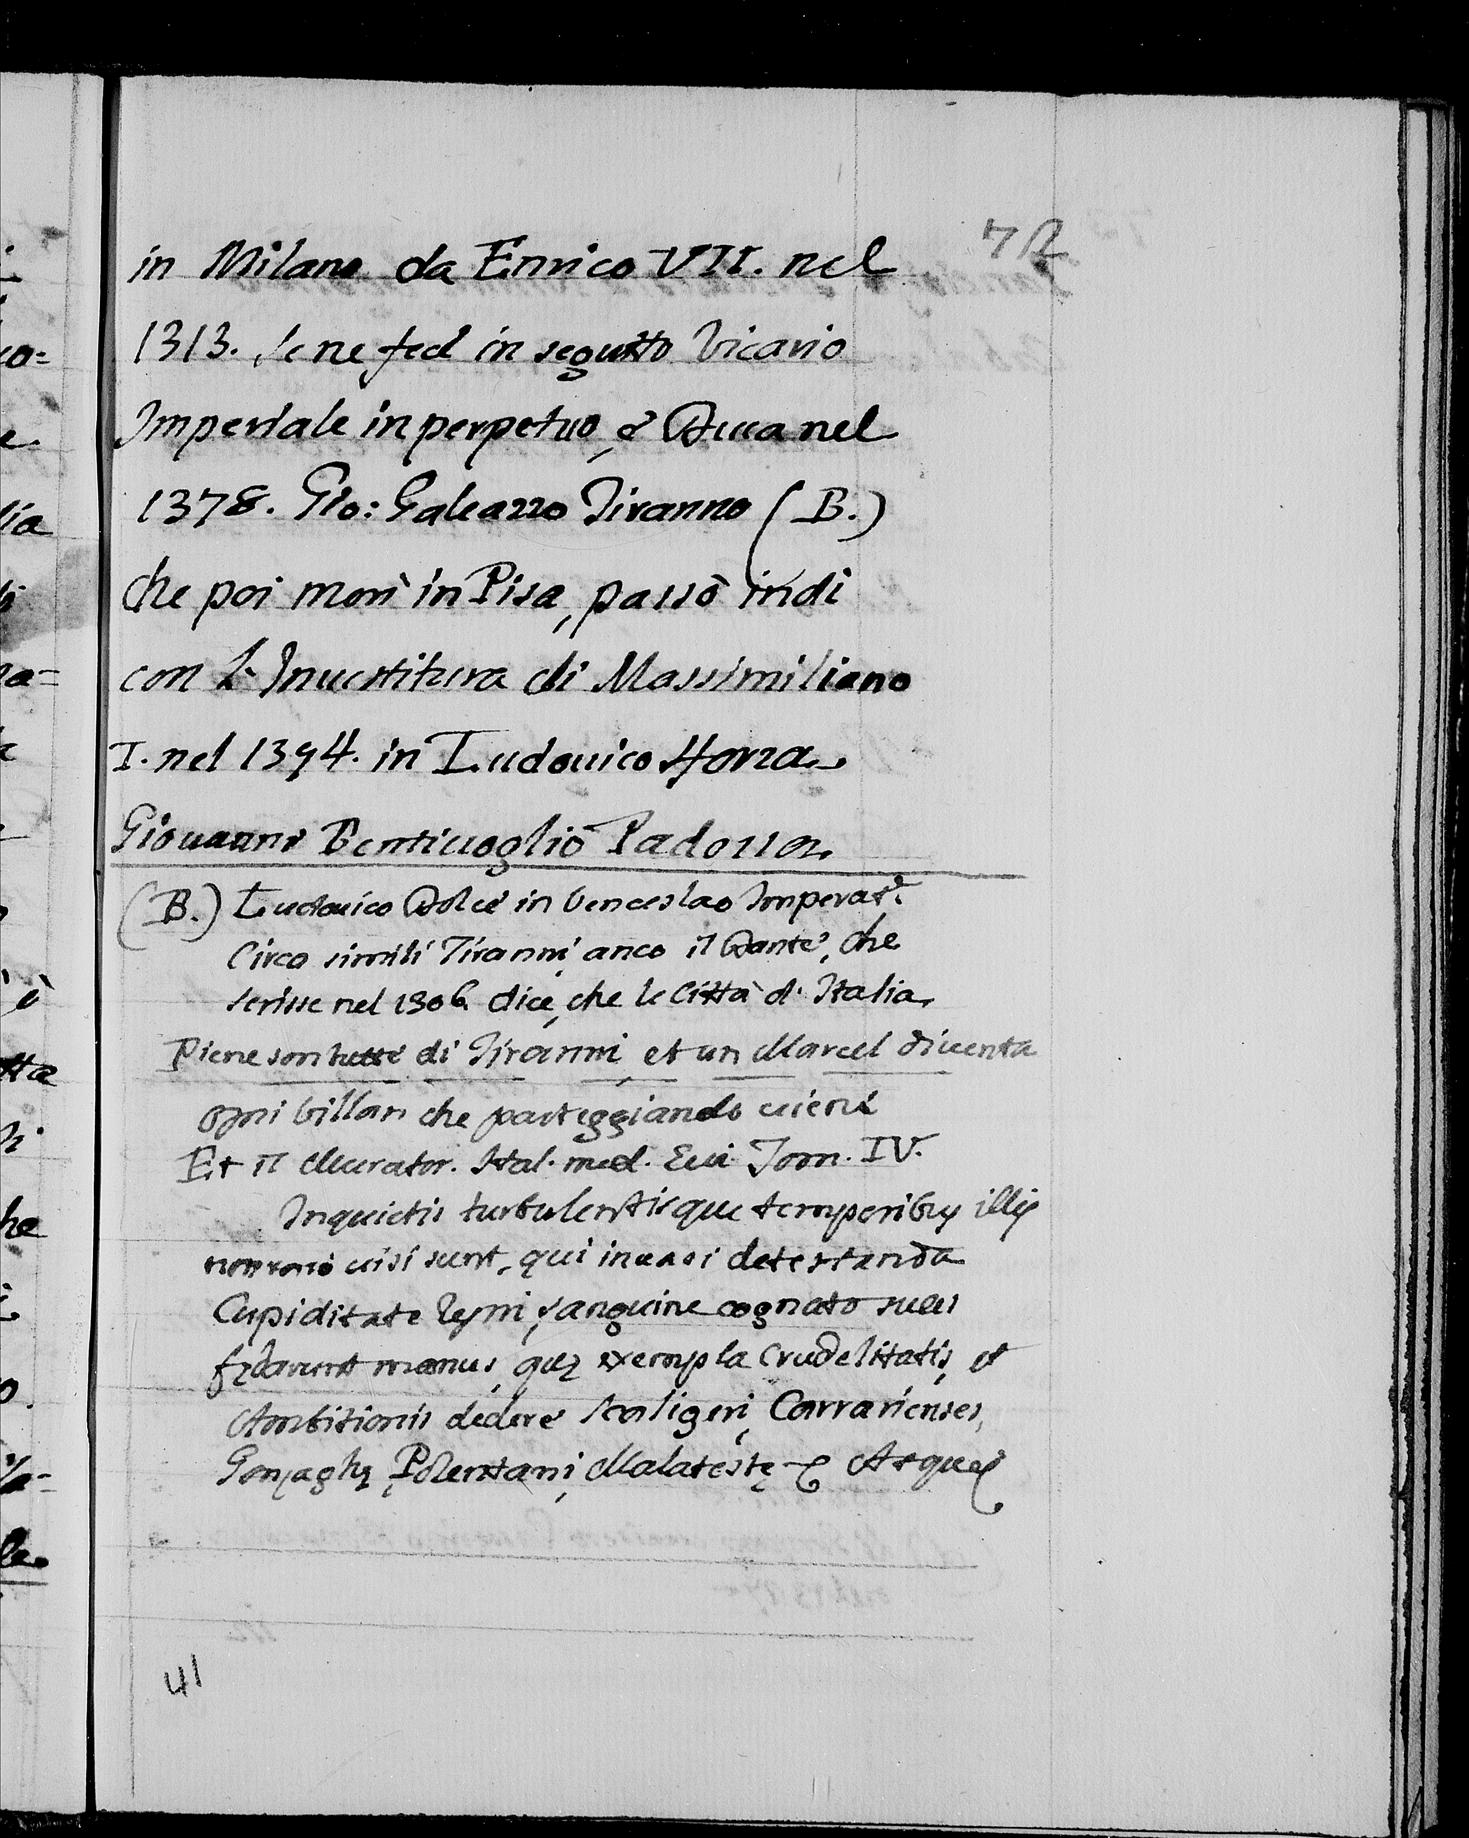 72
in Milano da Enrico VII. nel
1313. Se ne feci in seguito Vicario
Imperiale in perpetuo, e Duca nel
1378. Gio: Galeazzo Tiranno (B.)
che poi morì in Pisa, passò indi
con L'Inuestitura di Massimiliano
I. nel 1394. in Ludouico Sforza
Giouanni Bentiuoglio Padossa
(B.) Ludouico Dolce in Venceslao Imperat.e
Circa simili Tiranni, anco il Dante, che
scrisse nel 1306. dice, che le Città d' Italia
Piene son tutte di Tiranni, et un Marcel diuenta
ogni Villan che parteggiando uiene
Et il Murator. Ital. med. Eui Tom. IV.
Inquietis turbulentisque temporibus illis
uisi sunt, qui inuasi detestanda
Cupiditate Regni, sanguine cognato suas
fędarunt manus, quę exempla Crudelitatis, et
Ambitionis dedere Scaligeri, Carrarienses,
Gonzaghę, Polentani, Malatestę Atque
41